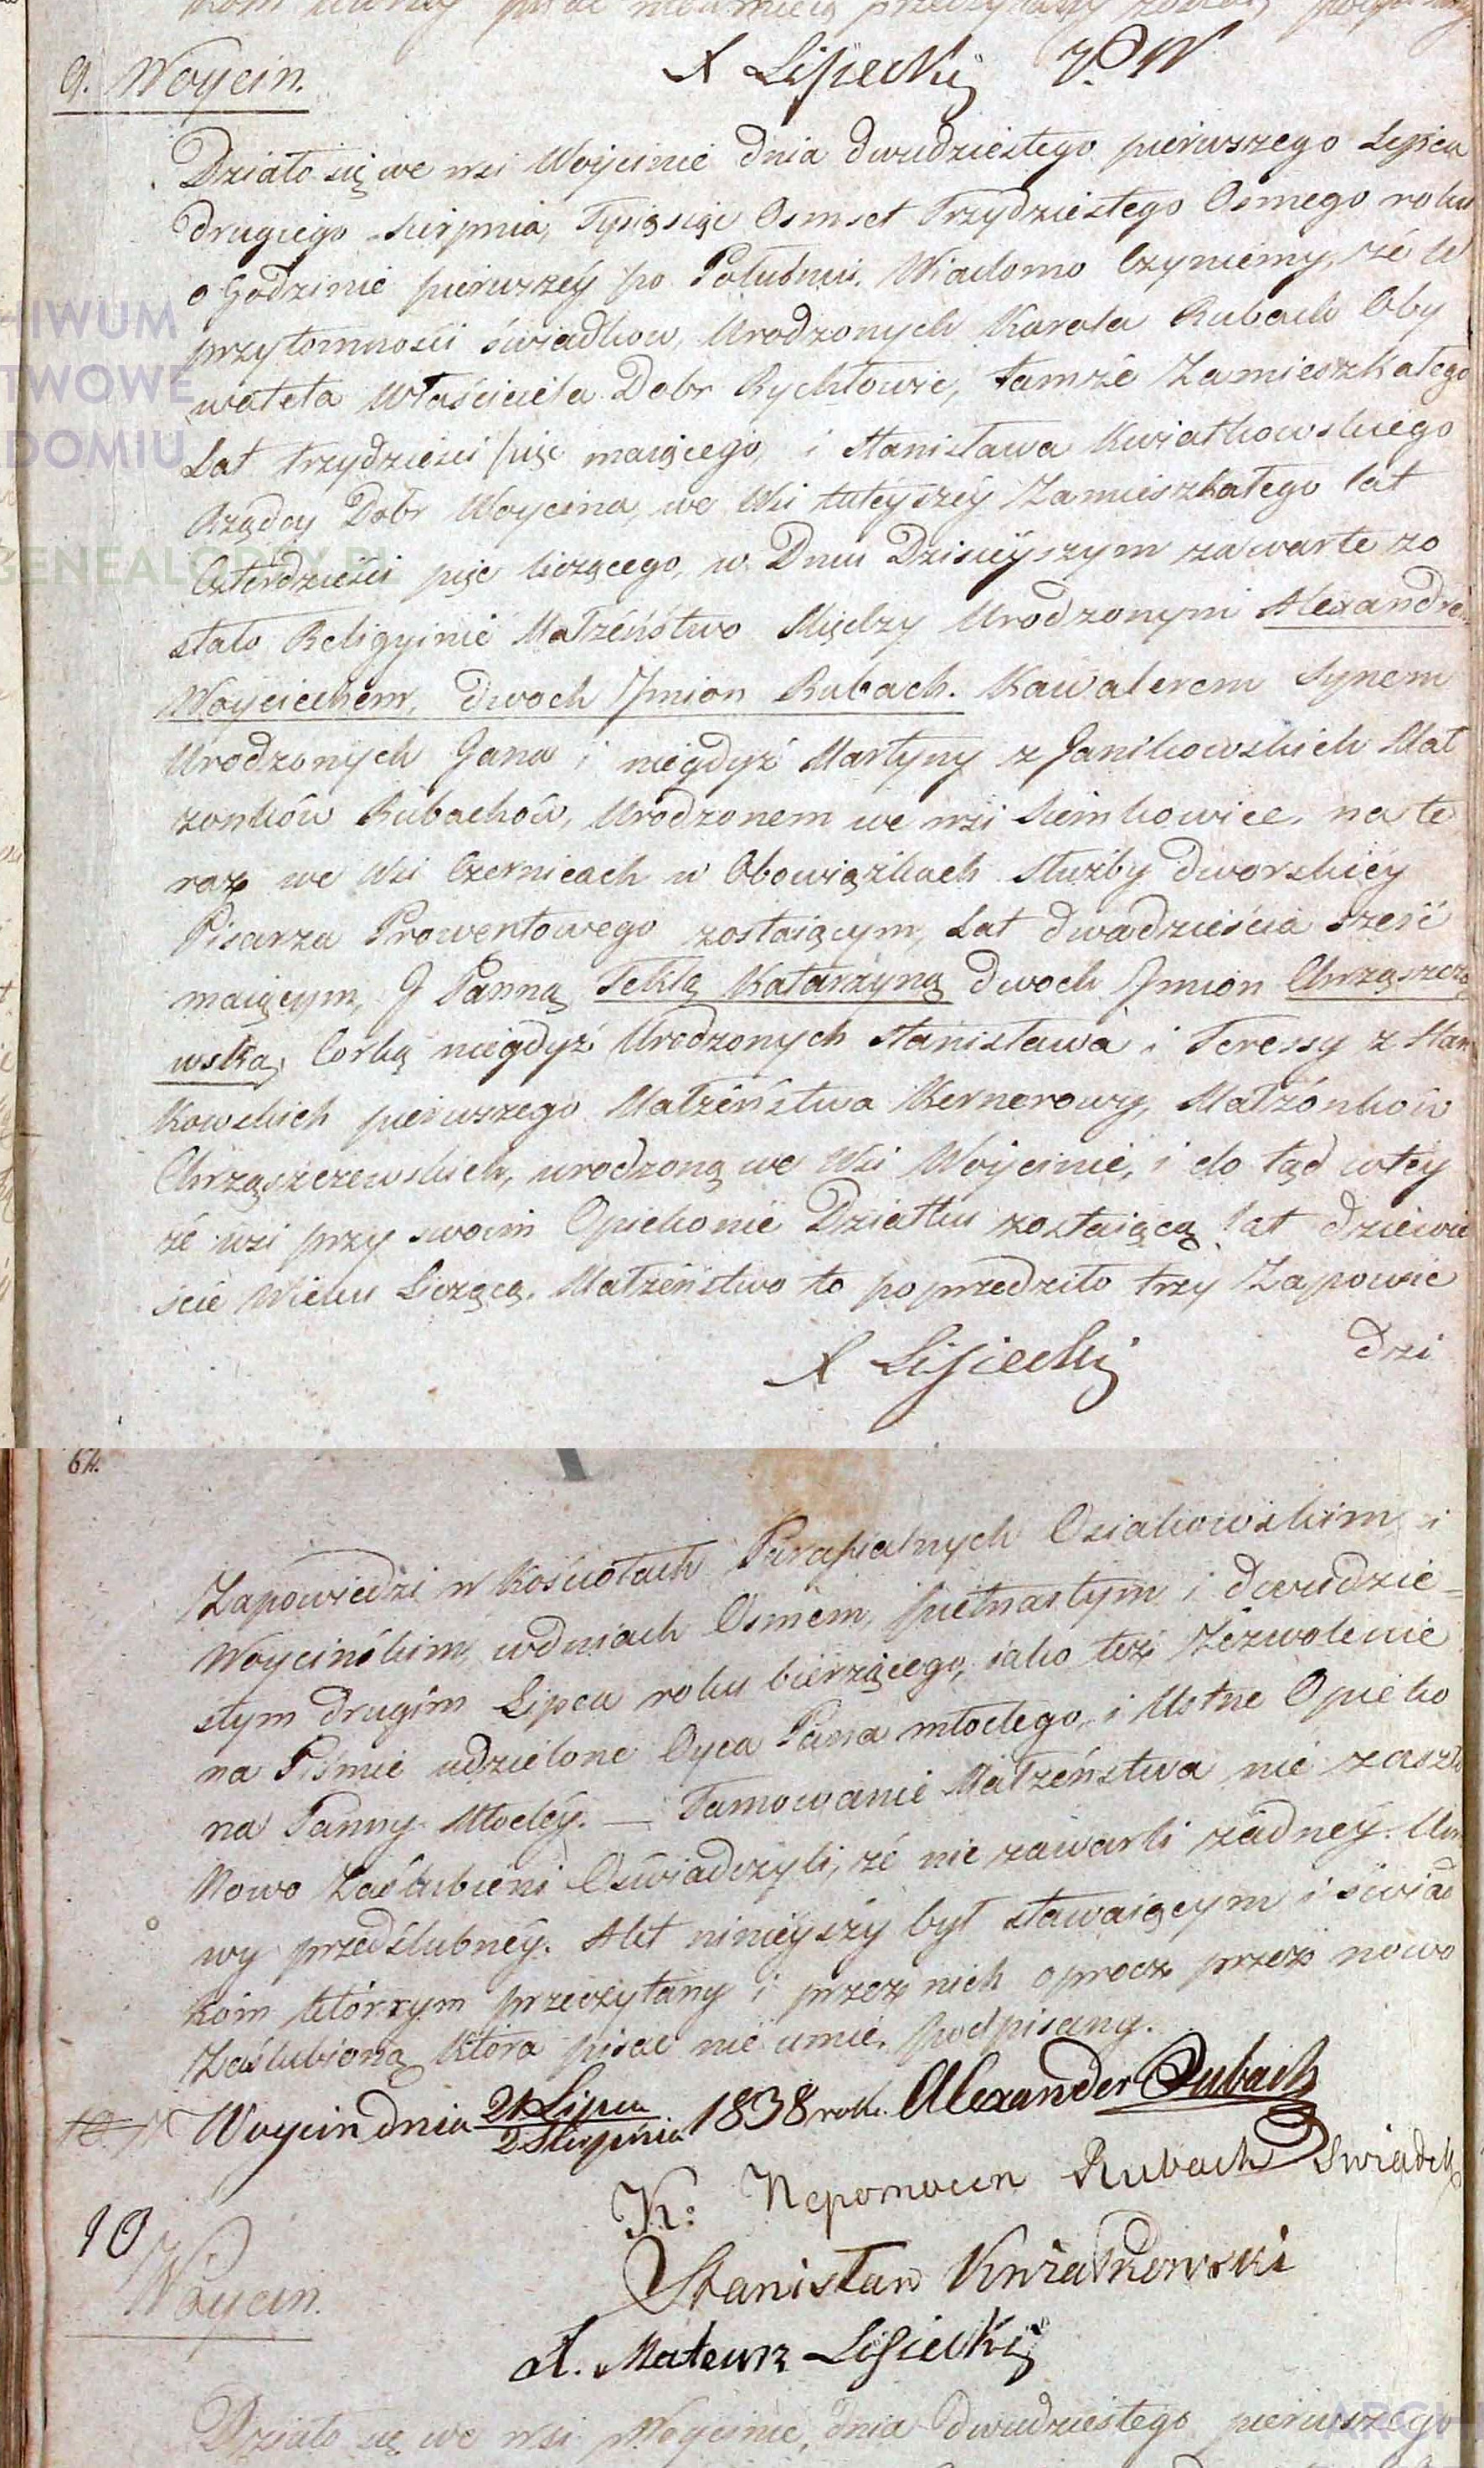 X Lisiecki
9. Woycin.
Działo się we wsi Woycinie dnia dwudziestego pierwszego Lipca
drugiego sierpnia, Tysiącśc Osmset Trzydziestego Osmego roku
o Godzinie pierwszéy po Południu. Wiadomo Czyniemy, że w
przytomności świadkow, Urodzonych Karola Rubach Oby
watela Właściciela Dobr Rychłowic, tamże Zamieszkałego
Lat trzydzieści pięc maiącego, i Stanisława Kwiatkowskiego
Rządcy Dobr Woycina, we Wsi tuteyszéy Zamieszkałego lat
Czterdzieści pięc liczącego, w Dniu Dzisieyszym zawarte zo
stało Religyinié Małżeństwo Między Urodzonymi Alexandre
Woyciechem, dwoch Jmion Rubach. Kawalerem Synem
Urodzonych Jana i niegdyś Martyny z Janikowskich Mał
żonków Rubachów, Urodzonem we wsi Siemkowice, na te
raz we Wsi Czernicach w Obowiązkach służby dworskiéy
Pisarza Prowentowego zostaiącym, Lat dwadzieścia sześć
maiącym, J Panną Teklą Katarzyną dwoch Jmion Chrząszcze
wską, Corką niegdyś Urodzonych Stanisława i Teressy z Stan
kowskich pierwszego Małżeństwa Kernerowy, Małżonków
Chrząszczewskich, urodzoną we Wsi Woycinie, i do tąd w téy
że wsi przy swoim Opiekonie Dziadku zostaiącą lat dziewię
ście Wieku Liczącą. Małżeństwo to poprzedziło trzy Zapowie
dzi
X Lisiecki
64.
Zapowiedzi w Kościołach Parafialnych Osiakowskim i
Woycińskim, w dniach Osmem, pietnastym i dwudzie-
stym drugim Lipca roku bierzącego, iako też Zézwolenie
na Piśmie udzielone Oyca Pana młodego, i Ustne Opieko
na Panny Młodéy. — Tamowanie Małżeństwa nié zaszło
Nowo Zaślubieni Oświadczyli, żé nie zawarli żadnéy Um
wy przedślubnéy. Akt ninieyszy był stawaiącym i świad
kom którym przeczytany i przez nich oprocz przez nowo
Zaślubioną która pisać nié umie, podpisany.
Woycin dnia 21 Lipca 1838 rok. Alexander Rubach
2 Sierpnia
K: Nepomocen Rubach Swiadek
10
Woycin.
Stanisław Kwiatkowski
X. Mateusz Lisiecki
Działo się we wsi Woycinie, dnia dwudziestego pierwszego
HIWUM
TWOWE
DOMIU
GENEALODZY.PL
ARCH